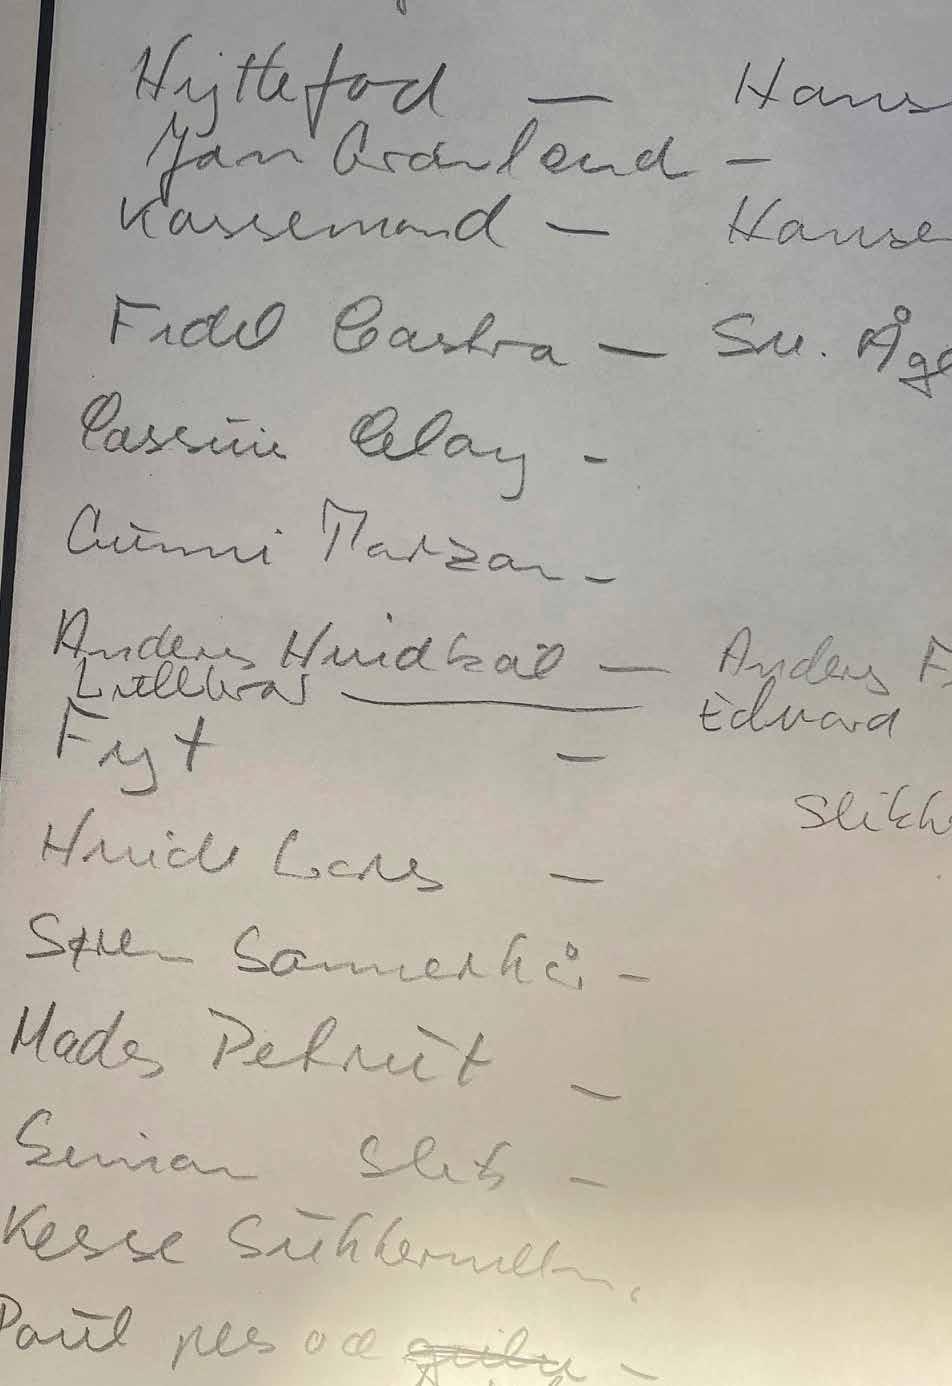 Hyttefad — Hans
Jan Grønland —
Kassemand — Hanse
Fidel Castro — Sv. Åge
Cassius Clay -
Gunni Tarzan -
Anders Hvidkål — Anders F
Lillebror — Edvard
Fryt —
Slikk
Hvide Lars —
Søren Sømmerkå -
Mads Petrut -
Senior Slik -
Kesse Sukker
Paul pes od